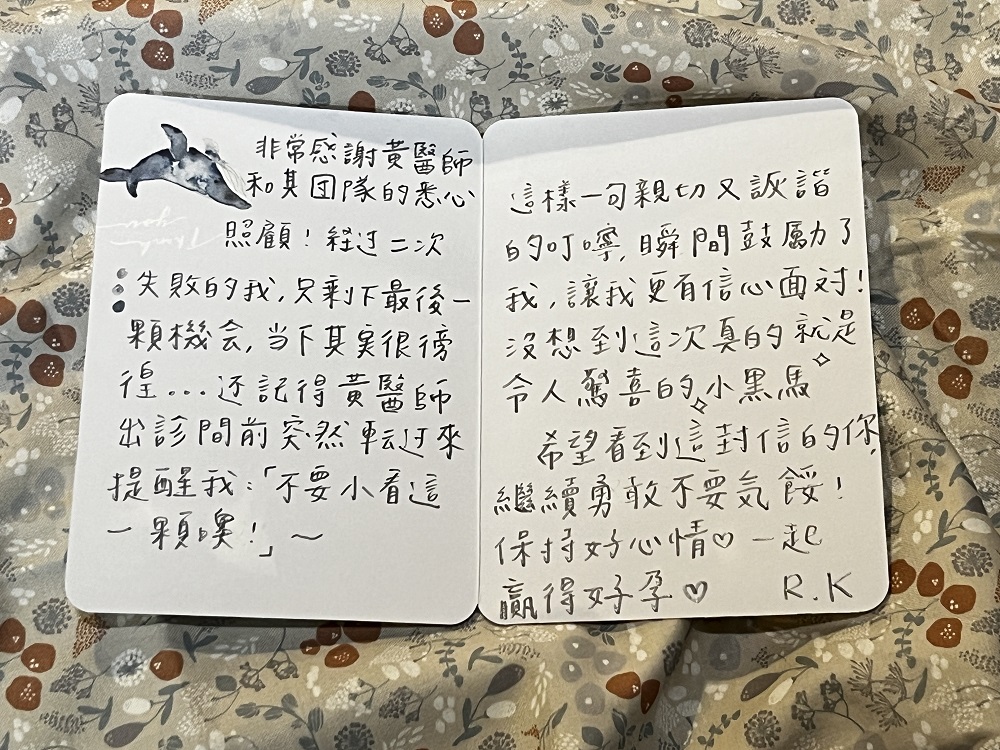 非常感謝黃醫師
和其团隊的悉心
照顧！経过二次
Thank you
失敗的我,只剩下最後一
顆機会,当下其实很徬
徨...还記得黃醫師
出診間前突然転过來
提醒我:「不要小看這
一顆噢!」~
這樣一句親切又詼諧
的叮嚀,瞬間鼓勵了
我,讓我更有信心面対!
沒想到這次真的就是
令人驚喜的小黑馬
希望看到這封信的你,
繼續勇敢不要気餒!
保持好心情♡一起
贏得好孕♡ R.K